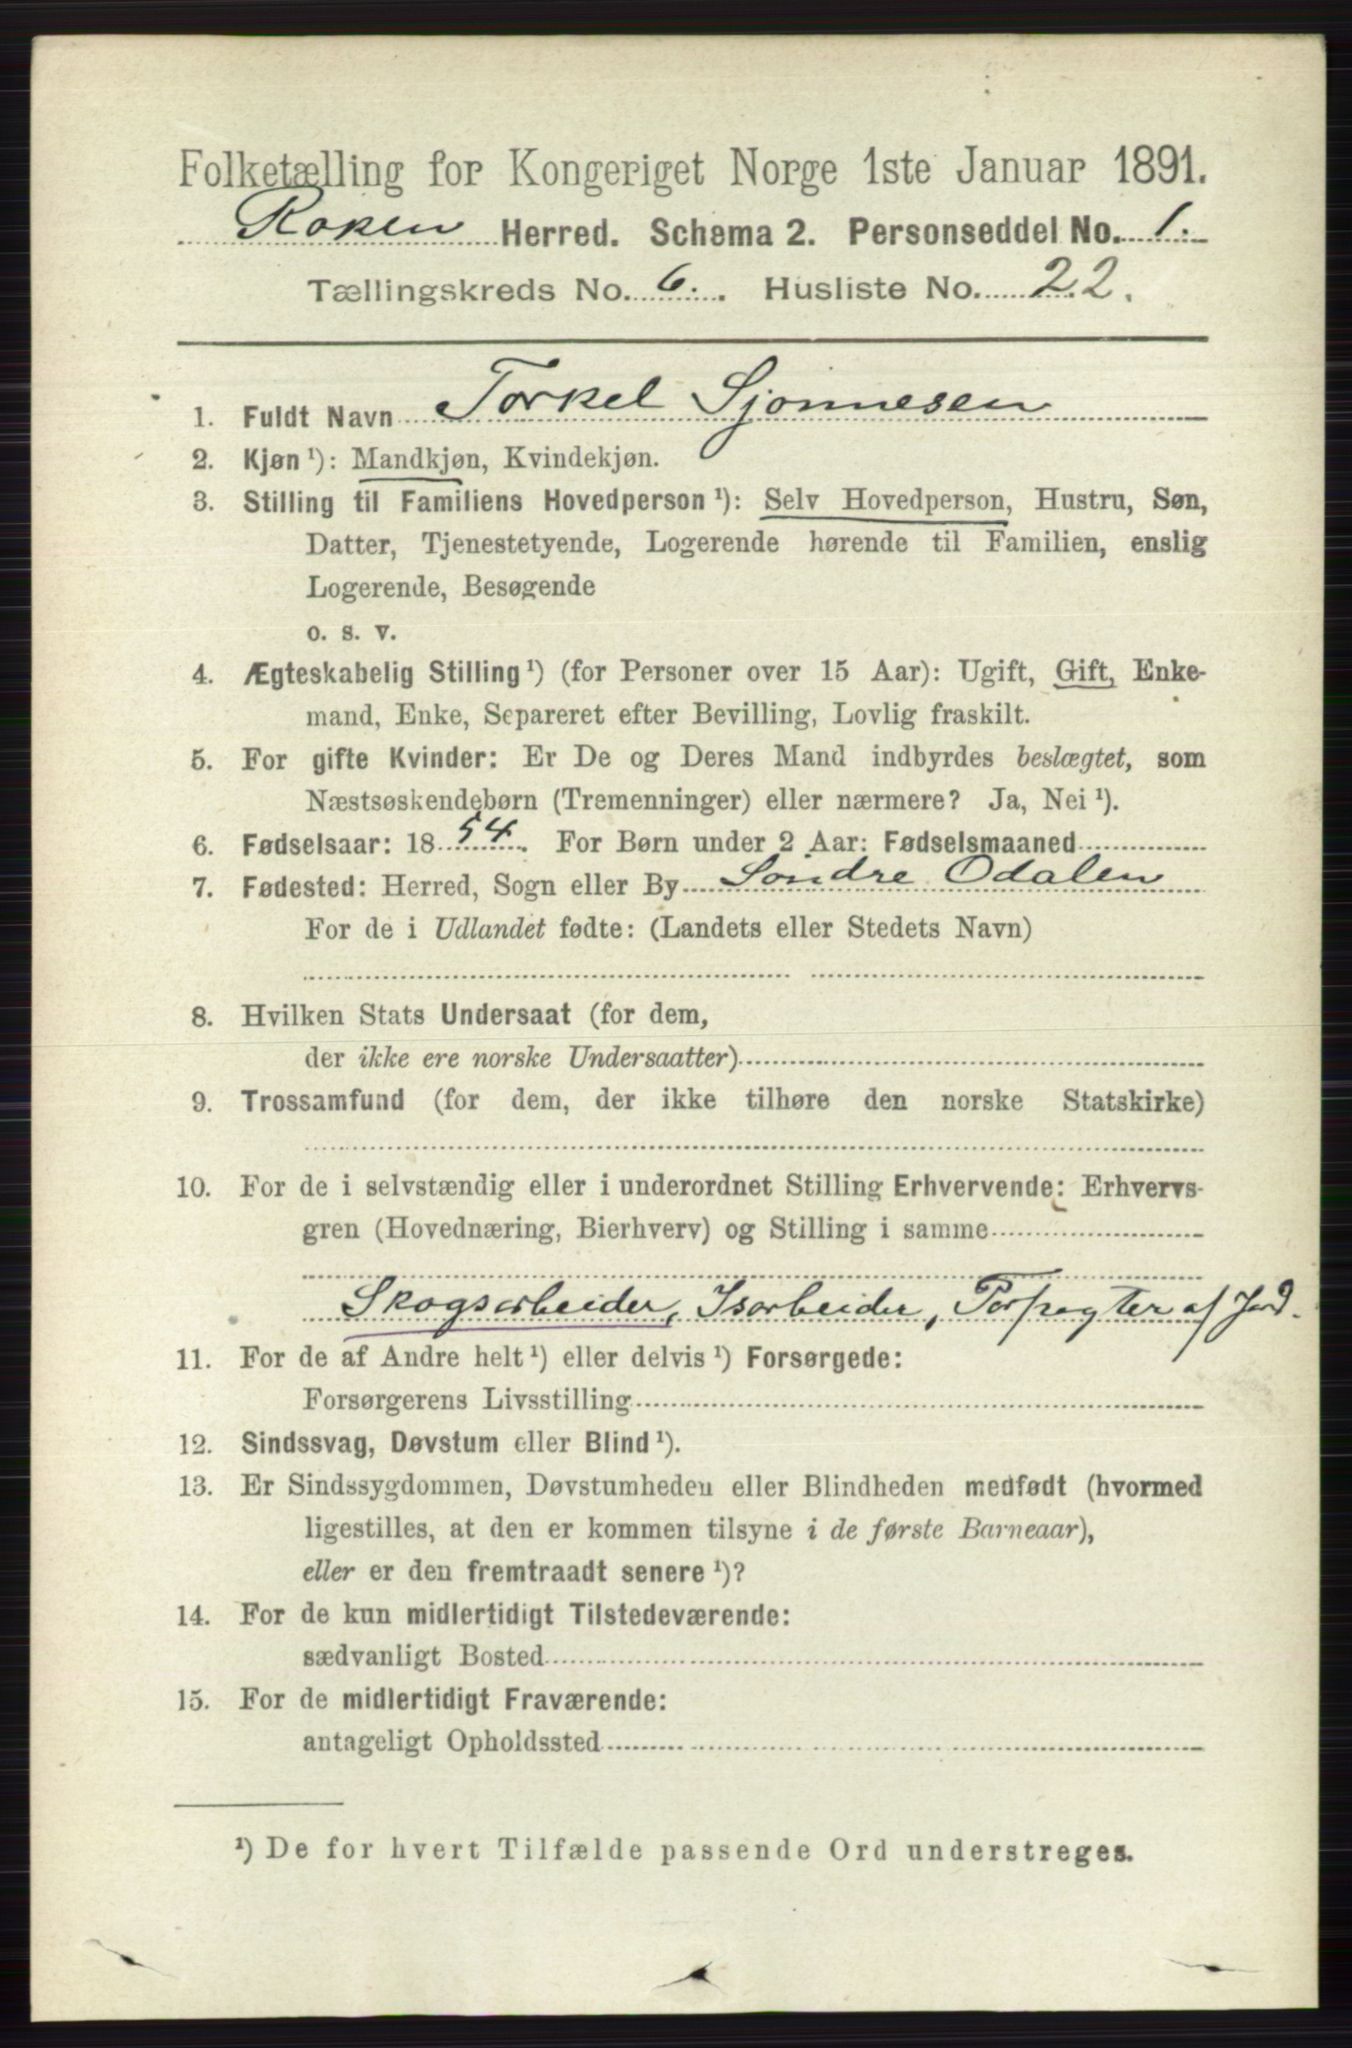 Folketælling for Kongeriget Norge 1ste Januar 1891.
Røken Herred. Schema 2. Personseddel No. 1.
Tællingskreds No. 6. Husliste No. 22.
1. Fuldt Navn Torkel Sjønnesen
2. Kjøn ¹): Mandkjøn, Kvindekjøn.
3. Stilling til Familiens Hovedperson ¹): Selv Hovedperson, Hustru, Søn,
Datter, Tjenestetyende, Logerende hørende til Familien, enslig
Logerende, Besøgende
o. s. v.
4. Ægteskabelig Stilling ¹) (for Personer over 15 Aar): Ugift, Gift, Enke-
mand, Enke, Separeret efter Bevilling, Lovlig fraskilt.
5. For gifte Kvinder: Er De og Deres Mand indbyrdes beslægtet, som
Næstsøskendebørn (Tremenninger) eller nærmere? Ja, Nei ¹).
6. Fødselsaar: 1854. For Børn under 2 Aar: Fødselsmaaned
7. Fødested: Herred, Sogn eller By Söndre Odalen
For de i Udlandet fødte: (Landets eller Stedets Navn)
8. Hvilken Stats Undersaat (for dem,
der ikke ere norske Undersaatter)
9. Trossamfund (for dem, der ikke tilhøre den norske Statskirke)
10. For de i selvstændig eller i underordnet Stilling Erhvervende: Erhvervs-
gren (Hovednæring, Bierhverv) og Stilling i samme
Skogsarbeider, Isarbeider, Forpagter af Jord.
11. For de af Andre helt ¹) eller delvis ¹) Forsørgede:
Forsørgerens Livsstilling
12. Sindssvag, Døvstum eller Blind ¹).
13. Er Sindssygdommen, Døvstumheden eller Blindheden medfødt (hvormed
ligestilles, at den er kommen tilsyne i de første Barneaar),
eller er den fremtraadt senere ¹)?
14. For de kun midlertidigt Tilstedeværende:
sædvanligt Bosted
15. For de midlertidigt Fraværende:
antageligt Opholdssted
¹) De for hvert Tilfælde passende Ord understreges.